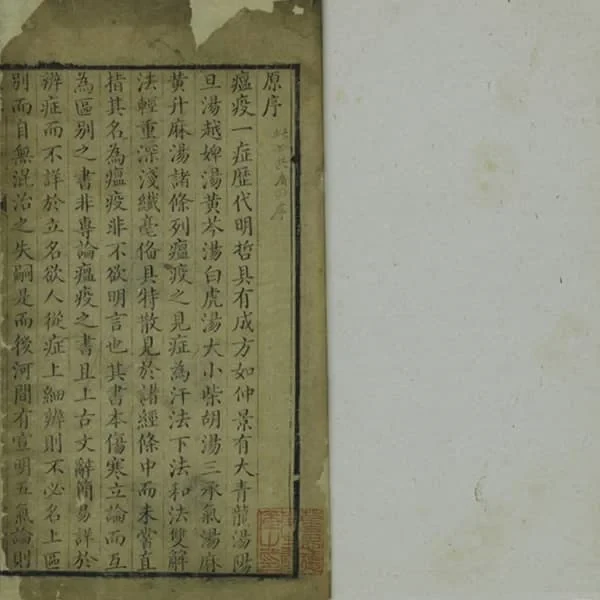 原序
瘟疫一症歷代明哲具有成方如仲景有大青龍湯陽
旦湯越婢湯黃芩湯白虎湯大小柴胡湯三承氣湯麻
黃升麻湯諸條列瘟疫之見症為汗法下法和法雙解
法輕重深淺纖毫俻具特散見於諸經條中而未嘗直
指其名為瘟疫非不欲明言也其書本傷寒立論而互
為區別之書非專論瘟疫之書且上古文辭簡易詳於
辨症而不詳於立名欲人從症上細辨則不必名上區
別而自無混治之失嗣是而後河間有宣明五氣論則